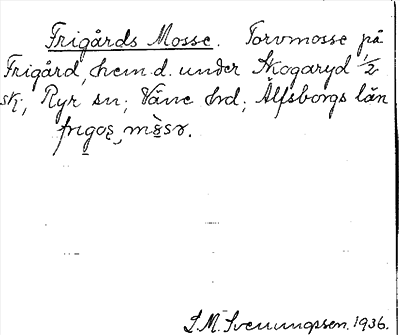 Frigårds Mosse. Torvmosse på
Frigård, hem d. under Skogaryd 1/2
sk; Ryr sn; Väne hd; Älfsborgs län
S. M. Svenungsson. 1936.